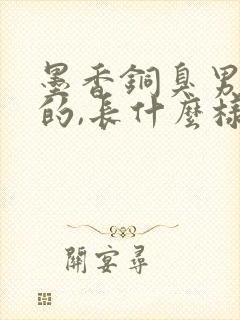 墨香銅臭男
的,長什麽樣
開宴尋